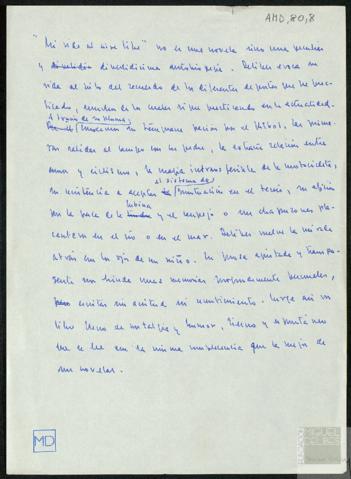 AMD,80,8
"Mi vida al aire libre" no es una novela sino una peculiar
y divertidísima autobiografía. Delibes evoca su
vida al hilo del recuerdo de los diferentes deportes que ha prac-
ticado, muchos de los cuales sigue practicando en la actualidad.
A través de su pluma,
conocemos su temprana pasión por el fútbol, las prime-
ras salidas al campo con su padre, la extraña relación entre
amor y ciclismo, la magia intransferible de la motocicleta,
el sistema de
su resistencia a aceptar puntuación en el tenis, su afición
lubina
por la pesca de la y el cangrejo o sus chapuzones pla-
centeros en el río o en el mar. Delibes vuelve la mirada
atrás con los ojos de un niño. En prosa ajustada y transpa-
rente nos brinda unas memorias profundamente personales,
escritas sin acritud ni resentimiento. Surge así un
libro lleno de nostalgia y humor, tierno y espontáneo
que se lee con la misma complacencia que la mejor de
sus novelas.
MD